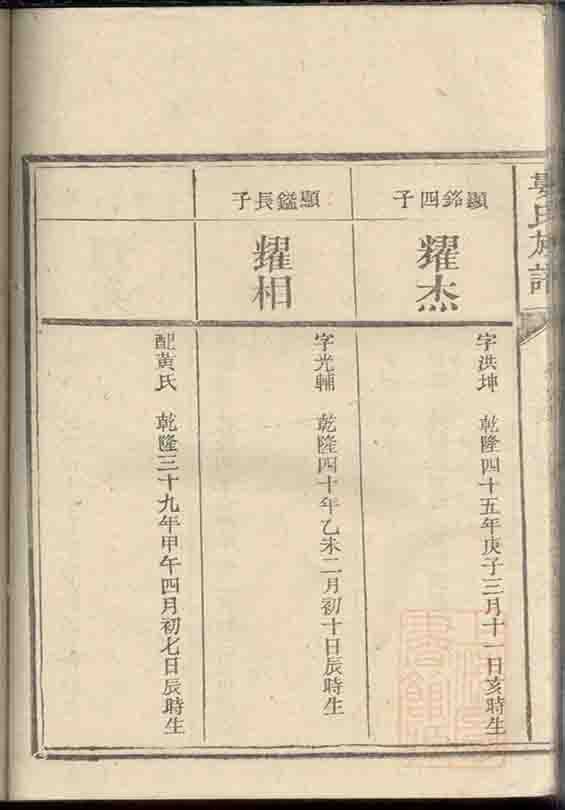 氏族譜
顯銘四子
耀杰
字洪坤 乾隆四十五年庚子三月十一日亥時生
顯鑑長子
耀相
字光輔 乾隆四十年乙未二月初十日辰時生
配黃氏 乾隆三十九年甲午四月初七日辰時生